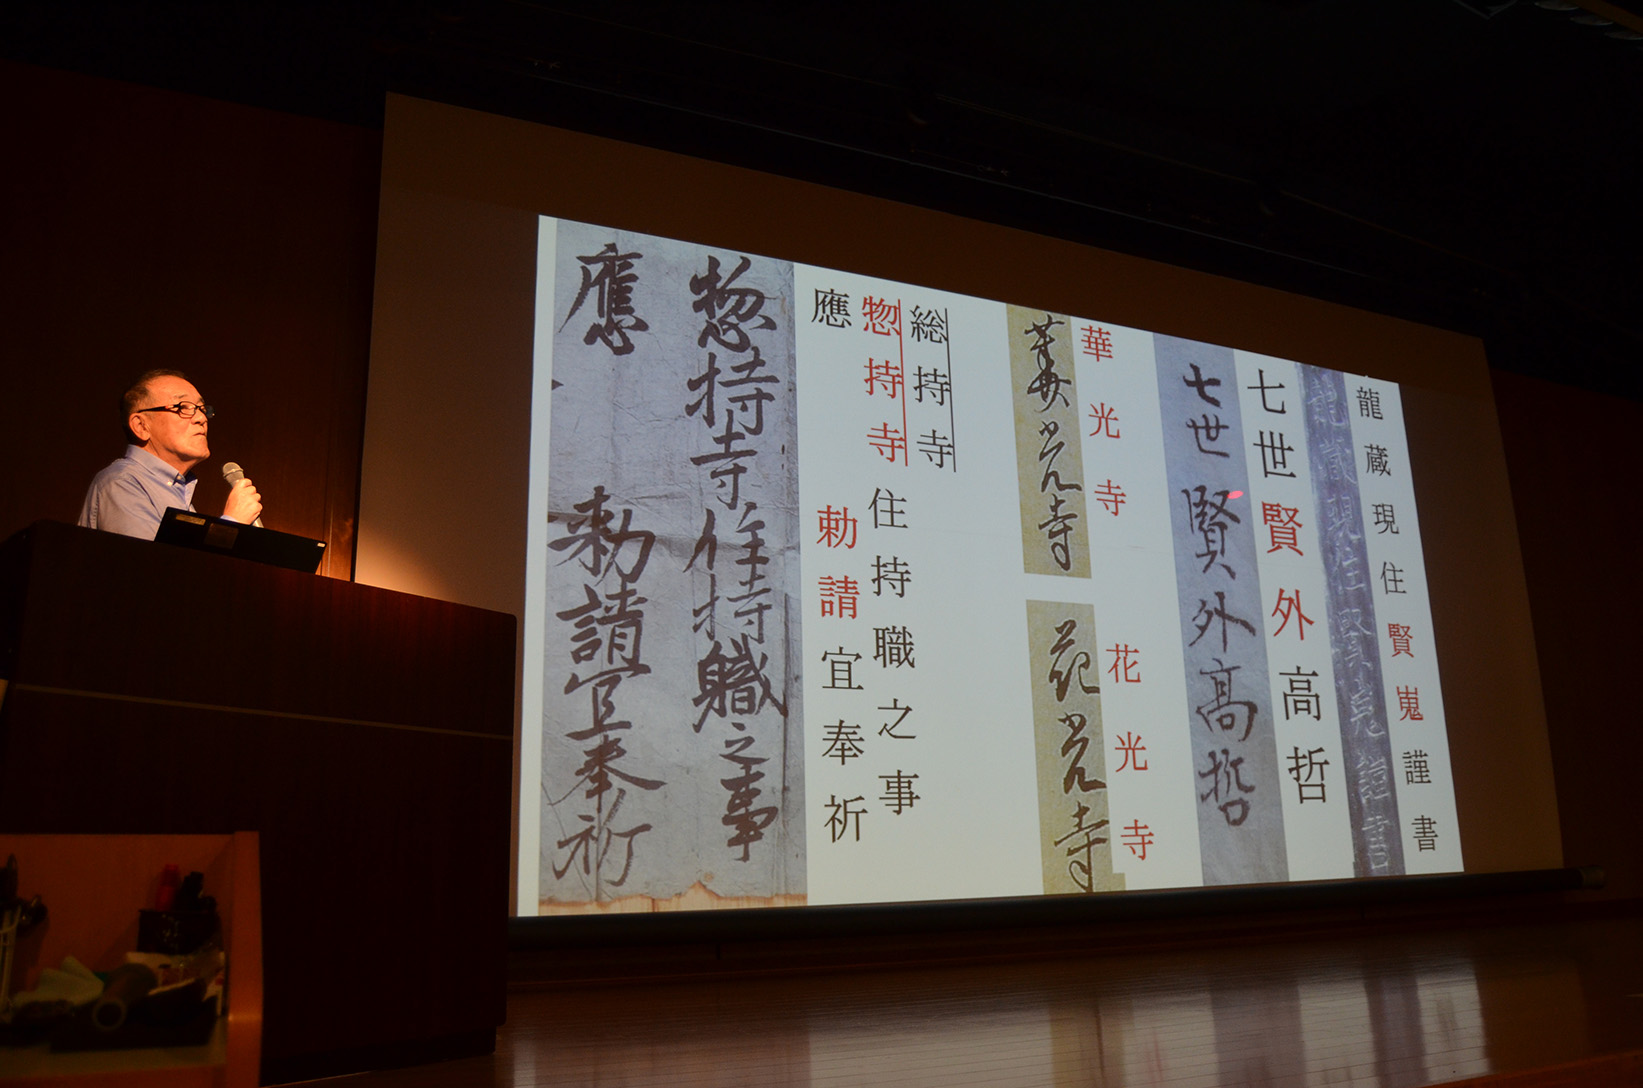 龍蔵現住賢嵬謹書
龍蔵現住賢嵬謹書
七世賢外高哲
七世賢外高哲
華光寺
華光寺
花光寺
花光寺
総持寺
惣持寺住持職之事
應勅請宜奉祈
惣持寺住持職之事
應勅請宜奉祈